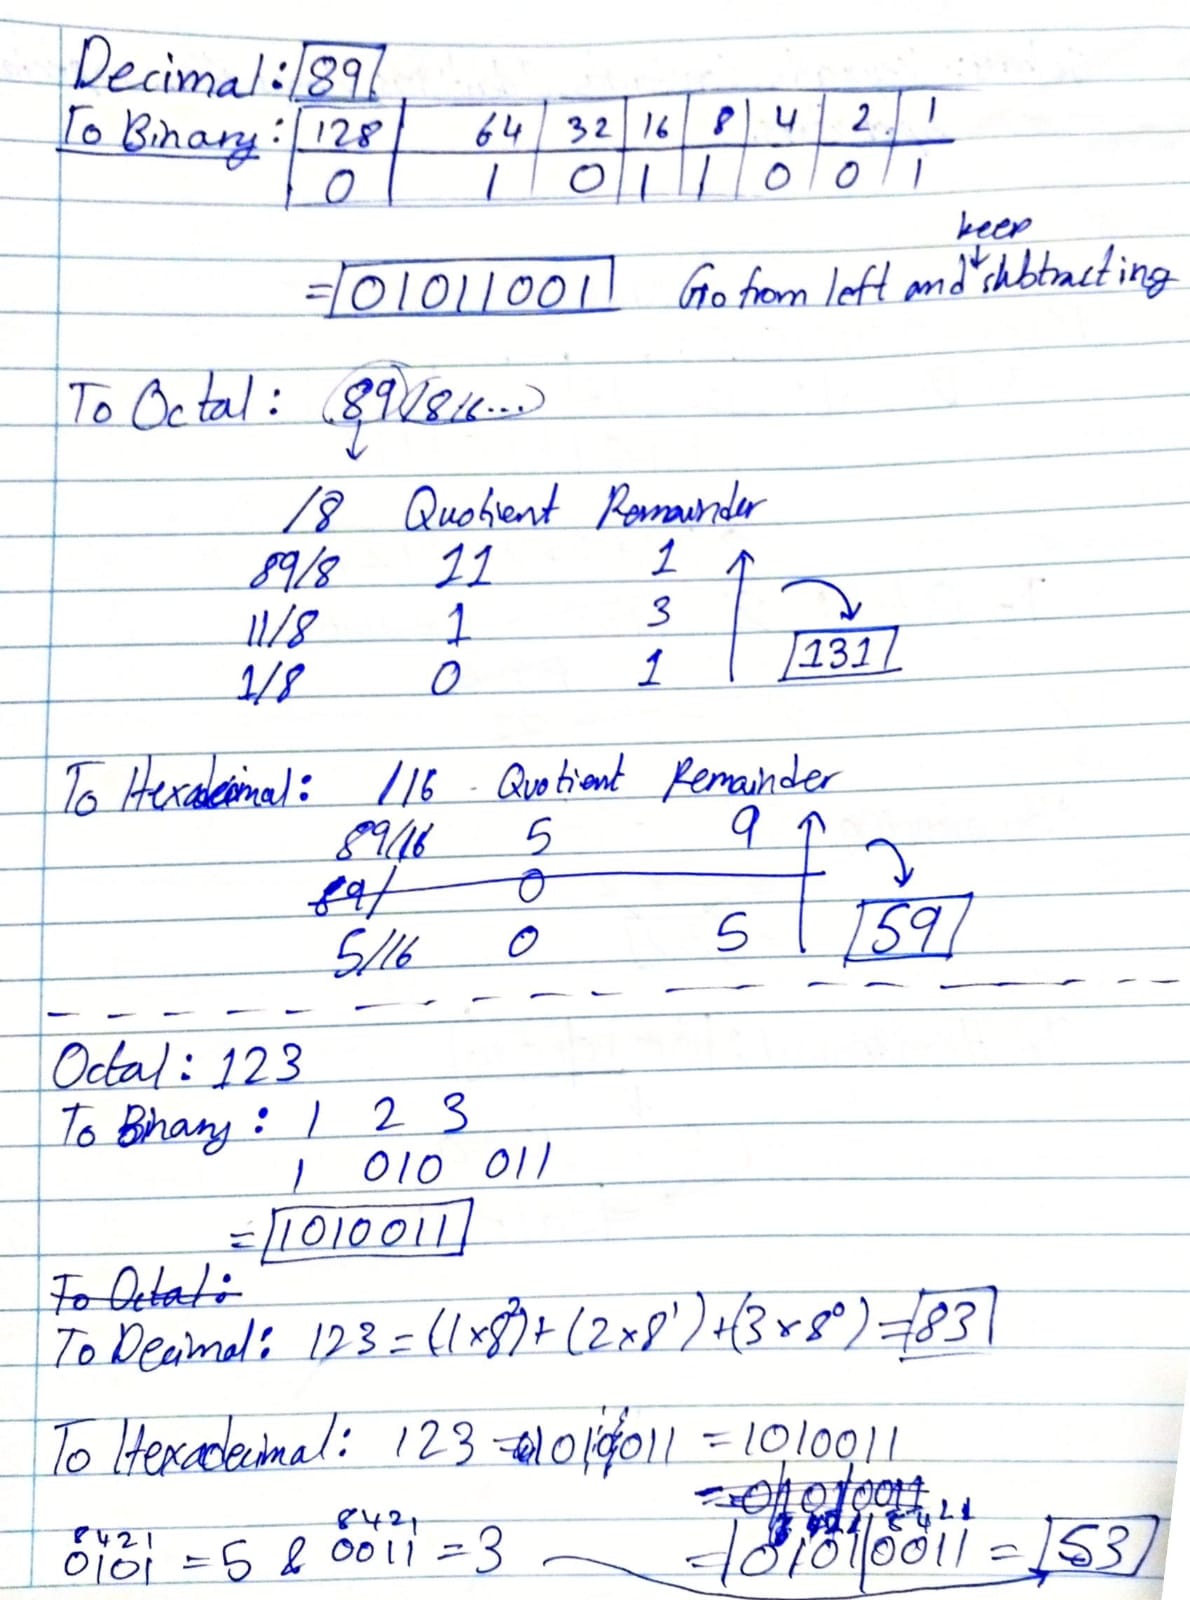 Decimal: 89
To Binary: 128 64 32 16 8 4 2 1
0 1 0 1 1 0 0 1
keep
= 01011001 Go from left and subtracting
To Octal: (89/8/6...)
/8 Quotient Remainder
89/8 11 1
11/8 1 3
131
1/8 0 1
To Hexadecimal: /16 Quotient Remainder
89/16 5 9
89/ 0
5/16 0 5 59
Octal: 123
To Binary: 1 2 3
1 010 011
= 1010011
To Octal:
To Decimal: 123 = (1×8²)+(2×8¹)+(3×8⁰) = 83
To Hexadecimal: 123 = 1010011 = 1010011
8421 8421
0101 = 5 & 0011 = 3 = 0101|0011 = 53